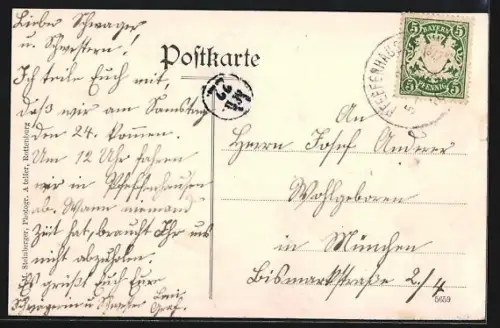 Lieber Schwager
u. Schwester!
Ich teile Euch mit,
daß wir am Samstag
den 24. kommen.
Um 12 Uhr fahren
wir in Pfeffenhausen
ab. Wann niemand
Zeit hat, braucht Ihr uns
nicht abzuholen.
Es grüßt Euch Eure
Schwägerin u. Schwester
Postkarte
M. Steinberger, Photogr. Atelier, Rottenburg
5 BAYERN 5
5 PFENNIG 5
PFEFFENHAUS
An
Herrn Josef
Wohlgeboren
in München
Bismarkstraße 2/4
5659